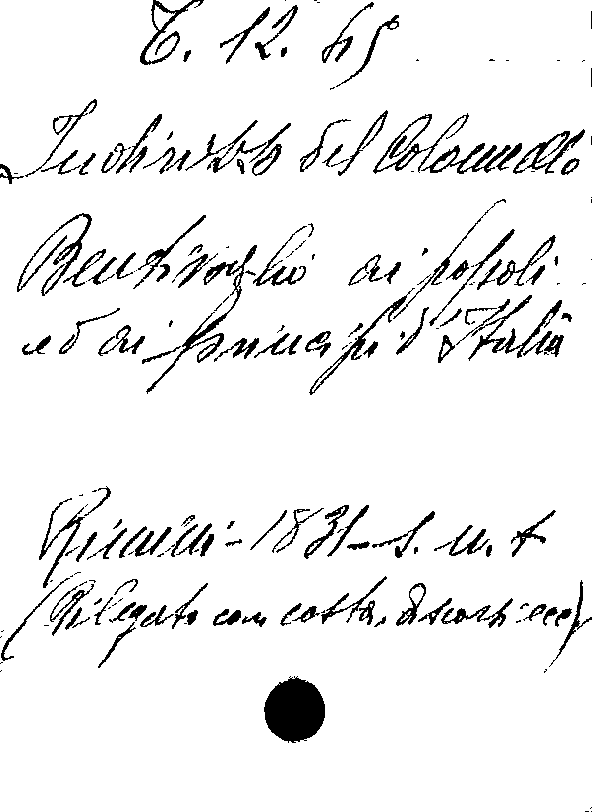 C. 12. 45
Indirizzo del Colonnello
Bentivoglio ai popoli
ed ai principi d'Italia
Rimini - 1831 - s. n. t
(Rilegato con costa, discorsi ecc)